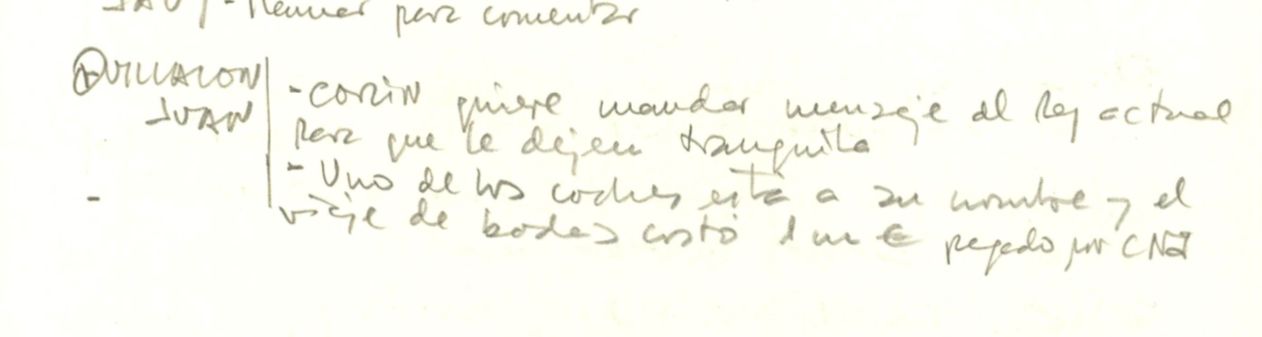 JAVI - Reunir para comentar
VILLALON JUAN
- CORIN quiere mandar mensaje al Rey actual
para que le dejen tranquila
- Uno de los coches está a su nombre y el
viaje de bodas costó 1 m € pagado por CNI
-